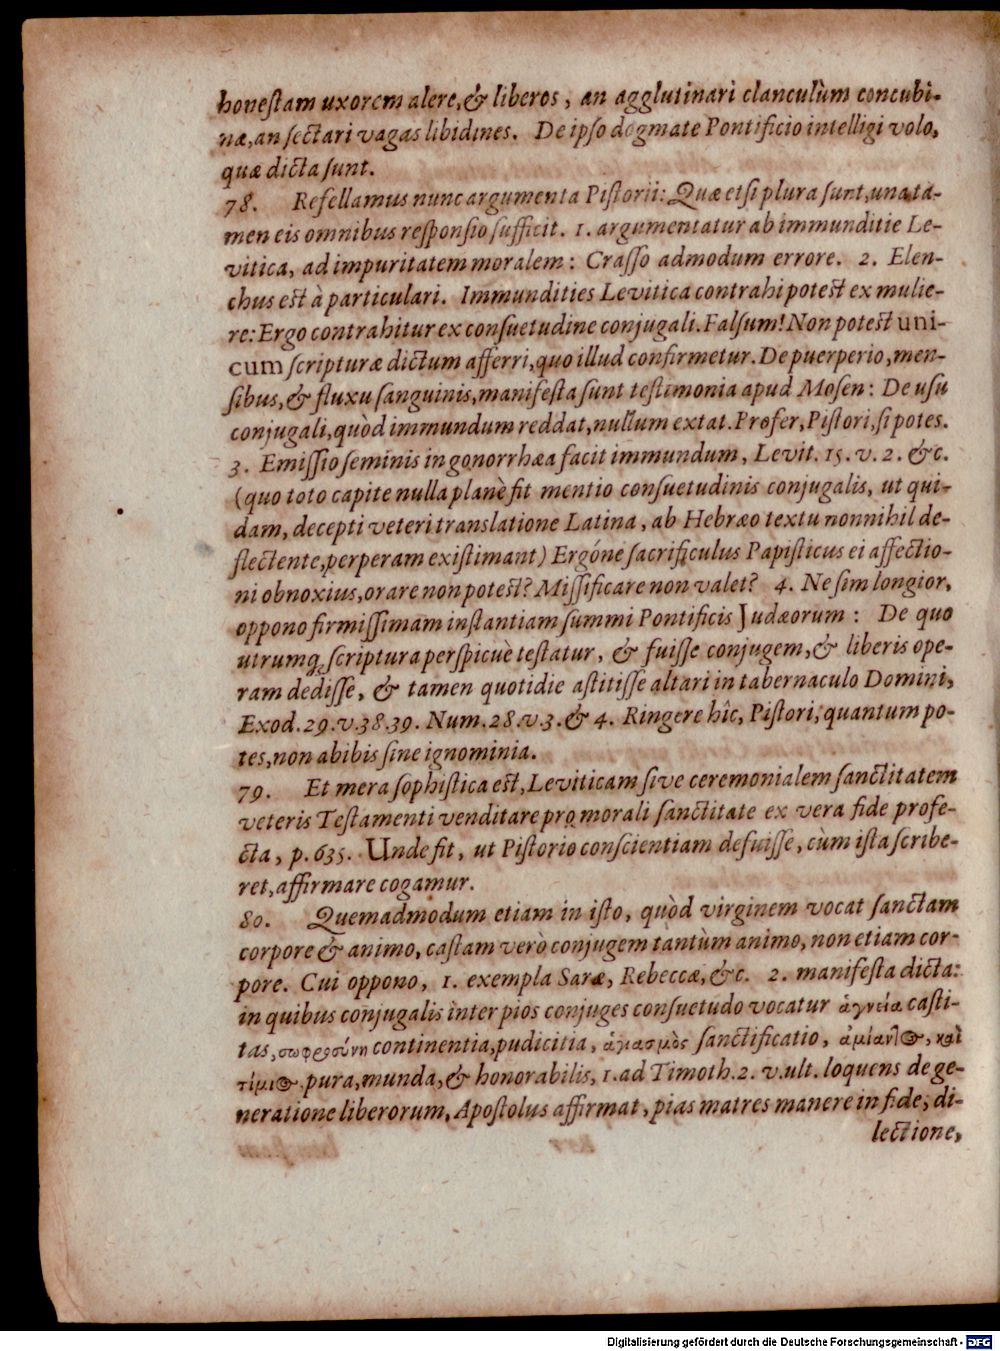 honestam uxorem alere, & liberos, an agglutinari clanculùm concubi-
næ, an sectari vagas libidines. De ipso dogmate Pontificio intelligi volo,
quæ dicta sunt.
78. Refellamus nunc argumenta Pistorii: Quæ etsi plura sunt, una ta-
men eis omnibus responsio sufficit. 1. argumentatur ab immunditie Le-
vitica, ad impuritatem moralem: Crasso admodum errore. 2. Elen-
chus est à particulari. Immundities Levitica contrahi potest ex mulie-
re: Ergo contrahitur ex consuetudine conjugali. Falsum! Non potest uni-
cum scripturæ dictum afferri, quo illud confirmetur. De puerperio, men-
sibus, & fluxu sanguinis, manifesta sunt testimonia apud Mosen: De usu
conjugali, quòd immundum reddat, nullum extat. Profer, Pistori, si potes.
3. Emissio seminis in gonorrhæa facit immundum, Levit. 15. v. 2. &c.
(quo toto capite nulla planè fit mentio consuetudinis conjugalis, ut qui-
dam, decepti veteri translatione Latina, ab Hebræo textu nonnihil de-
flectente, perperam existimant) Ergóne sacrificulus Papisticus ei affectio-
ni obnoxius, orare non potest? Missificare non valet? 4. Ne sim longior,
oppono firmissimam instantiam summi Pontificis Judæorum: De quo
utrumq; scriptura perspicuè testatur, & fuisse conjugem, & liberis ope-
ram dedisse, & tamen quotidie astitisse altari in tabernaculo Domini,
Exod. 29. v. 38. 39. Num. 28. v. 3. & 4. Ringere hîc, Pistori, quantum po-
tes, non abibis sine ignominia.
79. Et mera sophistica est, Leviticam sive ceremonialem sanctitatem
veteris Testamenti venditare pro morali sanctitate ex vera fide profe-
cta, p. 635. Unde fit, ut Pistorio conscientiam defuisse, cùm ista scribe-
ret, affirmare cogamur.
80. Quemadmodum etiam in isto, quòd virginem vocat sanctam
corpore & animo, castam verò conjugem tantùm animo, non etiam cor-
pore. Cui oppono, 1. exempla Saræ, Rebeccæ, &c. 2. manifesta dicta:
in quibus conjugalis inter pios conjuges consuetudo vocatur ἁγνεία casti-
tas, σωφροσύνη continentia, pudicitia, ἁγιασμὸς sanctificatio, ἀμίαντος, καὶ
τίμιος pura, munda, & honorabilis, 1. ad Timoth. 2. v. ult. loquens de ge-
neratione liberorum, Apostolus affirmat, pias matres manere in fide, di-
lectione,
Digitalisierung gefördert durch die Deutsche Forschungsgemeinschaft - DFG